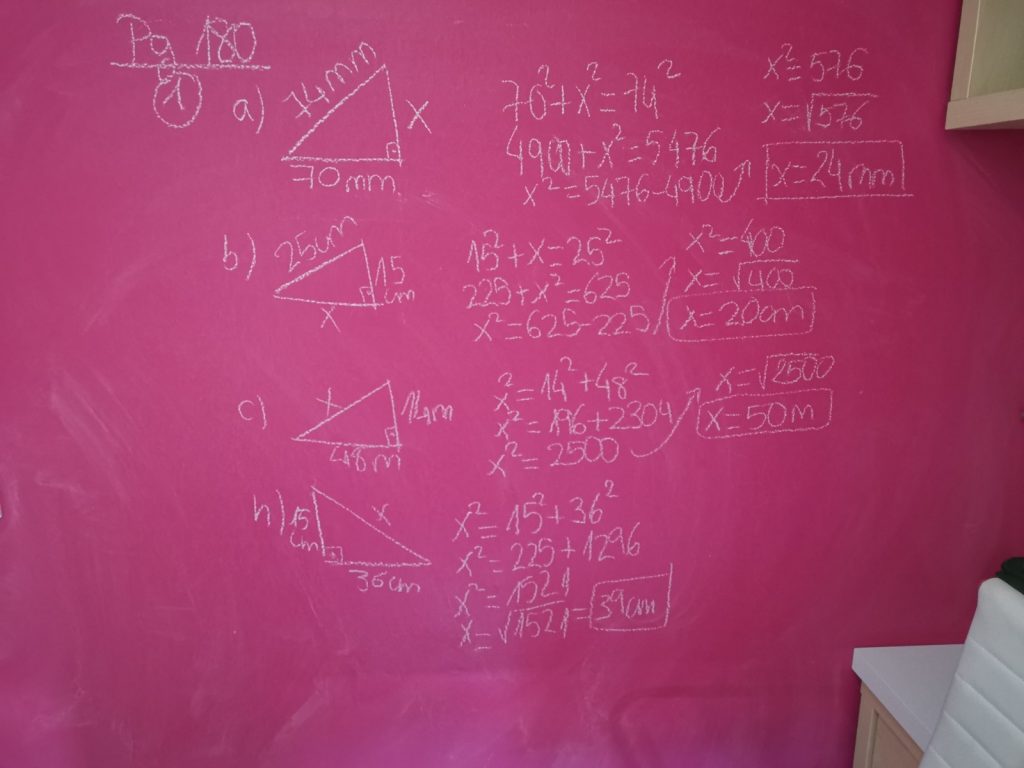 Pg 180
1
a)
74mm
x
70mm
70²+x²=74²
4900+x²=5476
x²=5476-4900
x²=576
x=√576
x=24mm
b)
25cm
15
cm
x
15²+x=25²
225+x²=625
x²=625-225
x²=400
x=√400
x=20cm
c)
x
14m
48m
x²=14²+48²
x²=196+2304
x²=2500
x=√2500
x=50m
h)
15
cm
x
36cm
x²=15²+36²
x²=225+1296
x²=1521
x=√1521=39cm